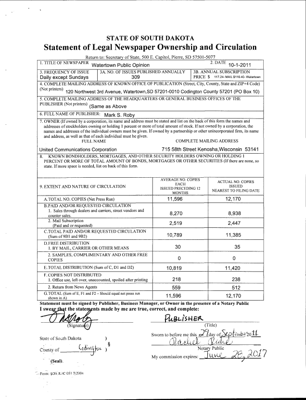 STATE OF SOUTH DAKOTA
Statement of Legal Newspaper Ownership and Circulation
Return to: Secretary of State, 500 E. Capitol, Pierre, SD 57501-5077
1. TITLE OF NEWSPAPER
Watertown Public Opinion
2. DATE
10-1-2011
3. FREQUENCY OF ISSUE
Daily except Sundays
3A. NO. OF ISSUES PUBLISHED ANNUALLY
309
3B. ANNUAL SUBSCRIPTION
PRICE $
4. COMPLETE MAILING ADDRESS OF KNOWN OFFICE OF PUBLICATION (Street, City, County, State and ZIP+4 Code)
(Not printers)
120 Northwest 3rd Avenue, Watertown,SD 57201-0010 Codington County 57201 (PO Box 10)
5. COMPLETE MAILING ADDRESS OF THE HEADQUARTERS OR GENERAL BUSINESS OFFICES OF THE
PUBLISHER (Not printers)
(Same as Above
6. FULL NAME OF PUBLISHER:
Mark S. Roby
7. OWNER (If owned by a corporation, its name and address must be stated and list on the back of this form the names and
addresses of stockholders owning or holding 1 percent or more of total amount of stock. If not owned by a corporation, the
names and addresses of the individual owners must be given. If owned by a partnership or other unincorporated firm, its name
and address, as well as that of each individual must be given.
FULL NAME
COMPLETE MAILING ADDRESS
United Communications Corporation
715 58th Street Kenosha,Wisconsin 53141
8. KNOWN BONDHOLDERS, MORTGAGES, AND OTHER SECURITY HOLDERS OWNING OR HOLDING 1
PERCENT OR MORE OF TOTAL AMOUNT OF BONDS, MORTGAGES OR OTHER SECURITIES (If there are none, so
state. If more space is needed, list on back of this form.
9. EXTENT AND NATURE OF CIRCULATION
AVERAGE NO. COPIES
EACH
ISSUED PRECEDING 12
MONTHS
ACTUAL NO. COPIES
ISSUED
NEAREST TO FILING DATE
A. TOTAL NO. COPIES (Net Press Run)
11,596
12,170
B. PAID AND/OR REQUESTED CIRCULATION
1. Sales through dealers and carriers, street vendors and
counter sales.
8,270
8,938
2. Mail Subscription
(Paid and or requested)
2,519
2,447
C. TOTAL PAID AND/OR REQUESTED CIRCULATION
(Sum of 9B1 and 9B2)
10,789
11,385
D. FREE DISTRIBUTION
1. BY MAIL, CARRIER OR OTHER MEANS
30
35
2. SAMPLES, COMPLIMENTARY AND OTHER FREE
COPIES
0
0
E. TOTAL DISTRIBUTION (Sum of C, D1 and D2)
10,819
11,420
F. COPIES NOT DISTRIBUTED
1. Office use, left over, unaccounted, spoiled after printing
218
238
2. Return from News Agents
559
512
G. TOTAL (Sum of E, F1 and F2 - Should equal net press run
shown in A)
11,596
12,170
Statement must be signed by Publisher, Business Manager, or Owner in the presence of a Notary Public
I swear that the statements made by me are true, correct, and complete:
PUBLISHER
(Signature)
(Title)
State of South Dakota )
County of Codington )
(Seal)
Sworn to before me this 29 day of September 2011
Notary Public
My commission expires: June 28, 2017